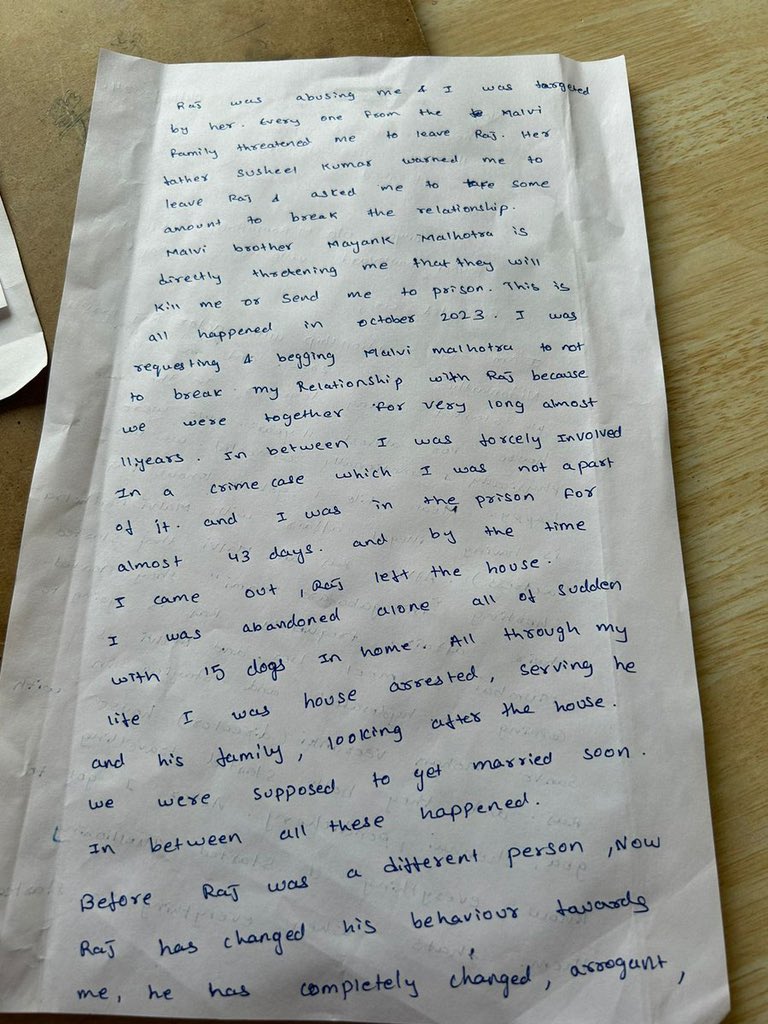 Raj was abusing me & I was targeted
by her. Every one from the Malvi
family threatened me to leave Raj. Her
father Susheel Kumar warned me to
leave Raj & asked me to take some
amount to break the relationship.
Malvi brother Mayank Malhotra is
directly thretening me that they will
kill me or send me to prison. This is
all happened in october 2023. I was
requesting & begging Malvi malhotra to not
to break my Relationship with Raj because
we were together for very long almost
11years. In between I was forcely Involved
In a crime case which I was not a part
of it. and I was in the prison for
almost 43 days. and by the time
I came out, Raj left the house.
I was abandoned alone all of sudden
with 15 dogs In home. All through my
life I was house arrested, serving he
and his family, looking after the house.
we were supposed to get married soon.
In between all these happened.
Before Raj was a different person, Now
Raj has changed his behaviour towards
me, he has completely changed, arrogant,